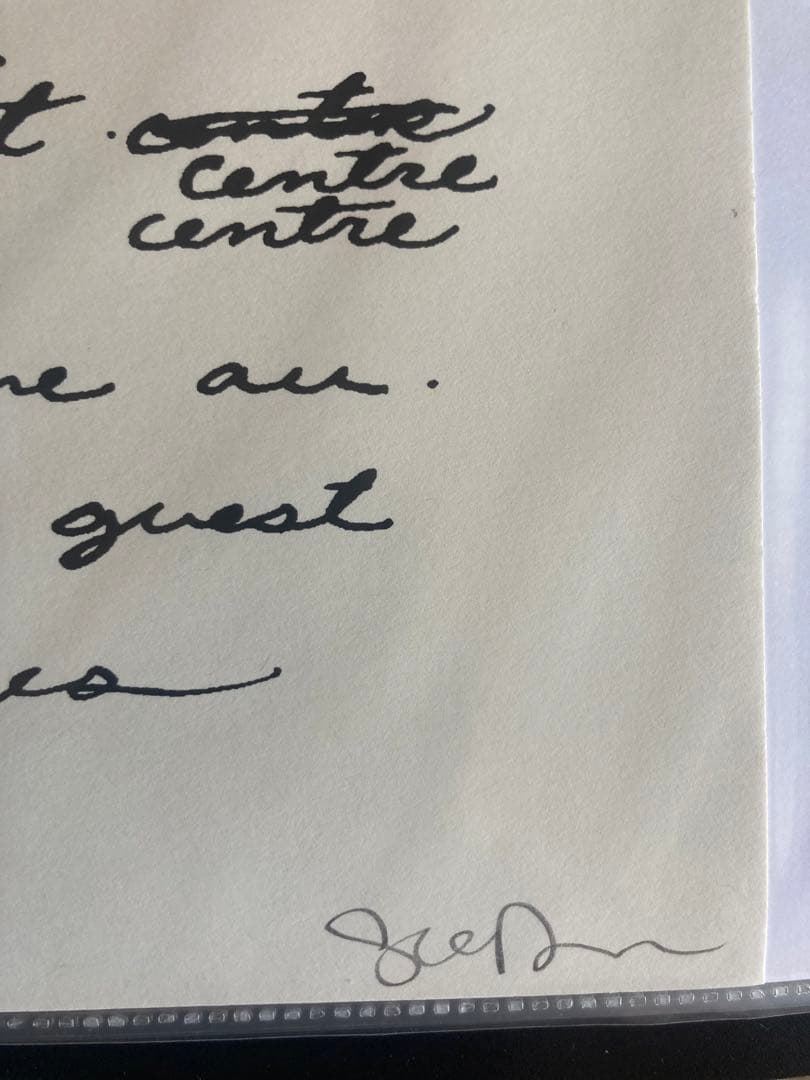 t. centre
centre
centre
re all.
guest
es